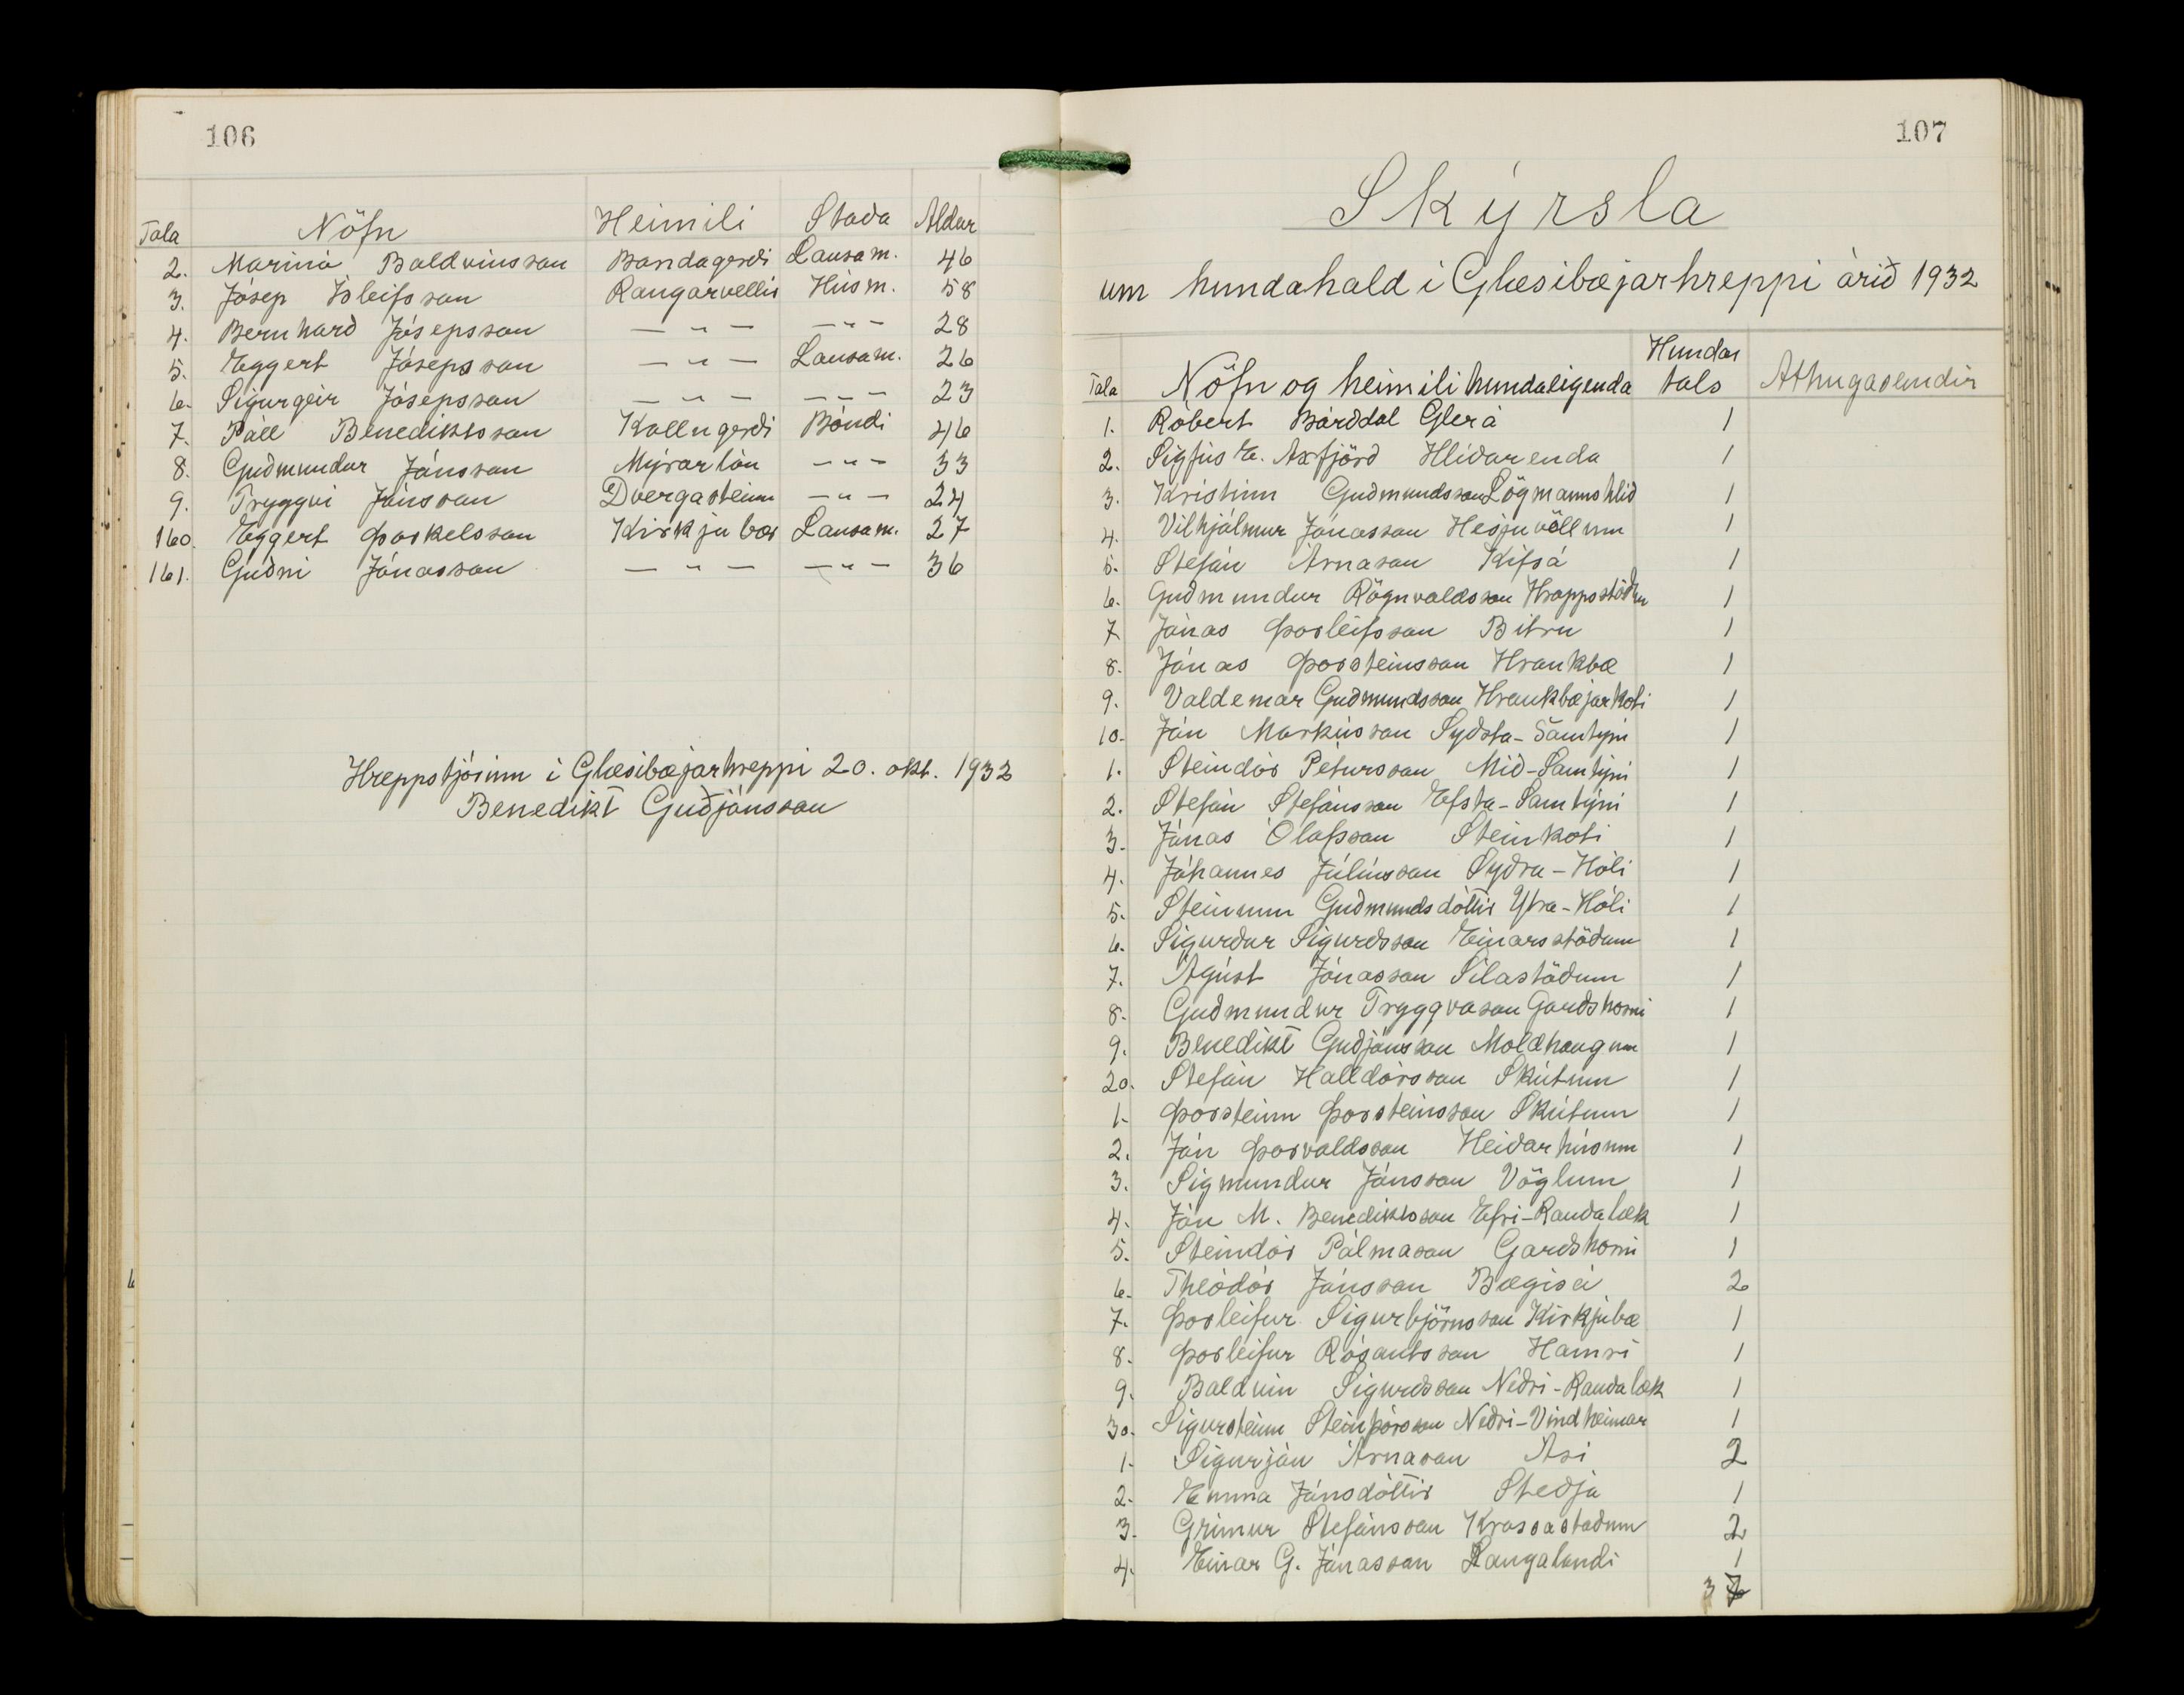 106
Tala Nöfn Heimili Staða Aldur
2. Marinó Baldvinsson Bandagerði Lausam. 46
3. Jósep Ísleifsson Rangárvellir Húsm. 58
4. Bernharð Jósepsson — „ — — „ — 28
5. Eggert Jósepsson — „ — Lausam. 26
6. Sigurgeir Jósepsson — „ — — „ — 23
7. Páll Benediktsson Kollugerði Bóndi 46
8. Guðmundur Jónsson Mýrarlón — „ — 33
9. Tryggvi Jónsson Dvergasteinn — „ — 24
160. Eggert Þorkelsson Kirkjubær Lausam. 27
161. Guðni Jónasson — „ — — „ — 36
Hreppstjórinn í Glæsibæjarhreppi 20. okt. 1932
Benedikt Guðjónsson
107
Skýrsla
um hundahald í Glæsibæjarhreppi árið 1932
Tala Nöfn og heimili hundaeigenda Hundar tals Athugasemdir
1. Róbert Bárðdal Glerá 1
2. Sigfús E. Axfjörð Hlíðarenda 1
3. Kristinn Guðmundsson Lögmannshlíð 1
4. Vilhjálmur Jónasson Hesjuvöllum 1
5. Stefán Árnason Kífsá 1
6. Guðmundur Rögnvaldsson Hrappstöðum 1
7. Jónas Þorleifsson Bitru 1
8. Jónas Þorsteinsson Hraukbæ 1
9. Valdemar Guðmundsson Hraukbæjarkoti 1
10. Jón Markússon Syðsta-Samtýni 1
1. Steindór Pétursson Mið-Samtýni 1
2. Stefán Stefánsson Efsta-Samtýni 1
3. Jónas Ólafsson Steinkoti 1
4. Jóhannes Júlíusson Syðra-Hóli 1
5. Steinunn Guðmundsdóttir Ytra-Hóli 1
6. Sigurður Sigurðsson Einarsstöðum 1
7. Ágúst Jónasson Sílastöðum 1
8. Guðmundur Tryggvason Garðshorni 1
9. Benedikt Guðjónsson Moldhaugum 1
20. Stefán Halldórsson Skútum 1
1. Þorsteinn Þorsteinsson Skútum 1
2. Jón Þorvaldsson Heiðarhúsum 1
3. Sigmundur Jónsson Vöglum 1
4. Jón M. Benediktsson Efri-Rauðalæk 1
5. Steindór Pálmason Garðshorni 1
6. Theódór Jónsson Bægisá 2
7. Þorleifur Sigurbjörnsson Kirkjubæ 1
8. Þorleifur Rósantsson Hamri 1
9. Baldvin Sigurðsson Neðri-Rauðalæk 1
30. Sigursteinn Steinþórsson Neðri-Vindheimar 1
1. Sigurjón Árnason Ási 2
2. Emma Jónsdóttir Steðja 1
3. Grímur Stefánsson Krossastöðum 2
4. Einar G. Jónasson Laugalandi 1
37